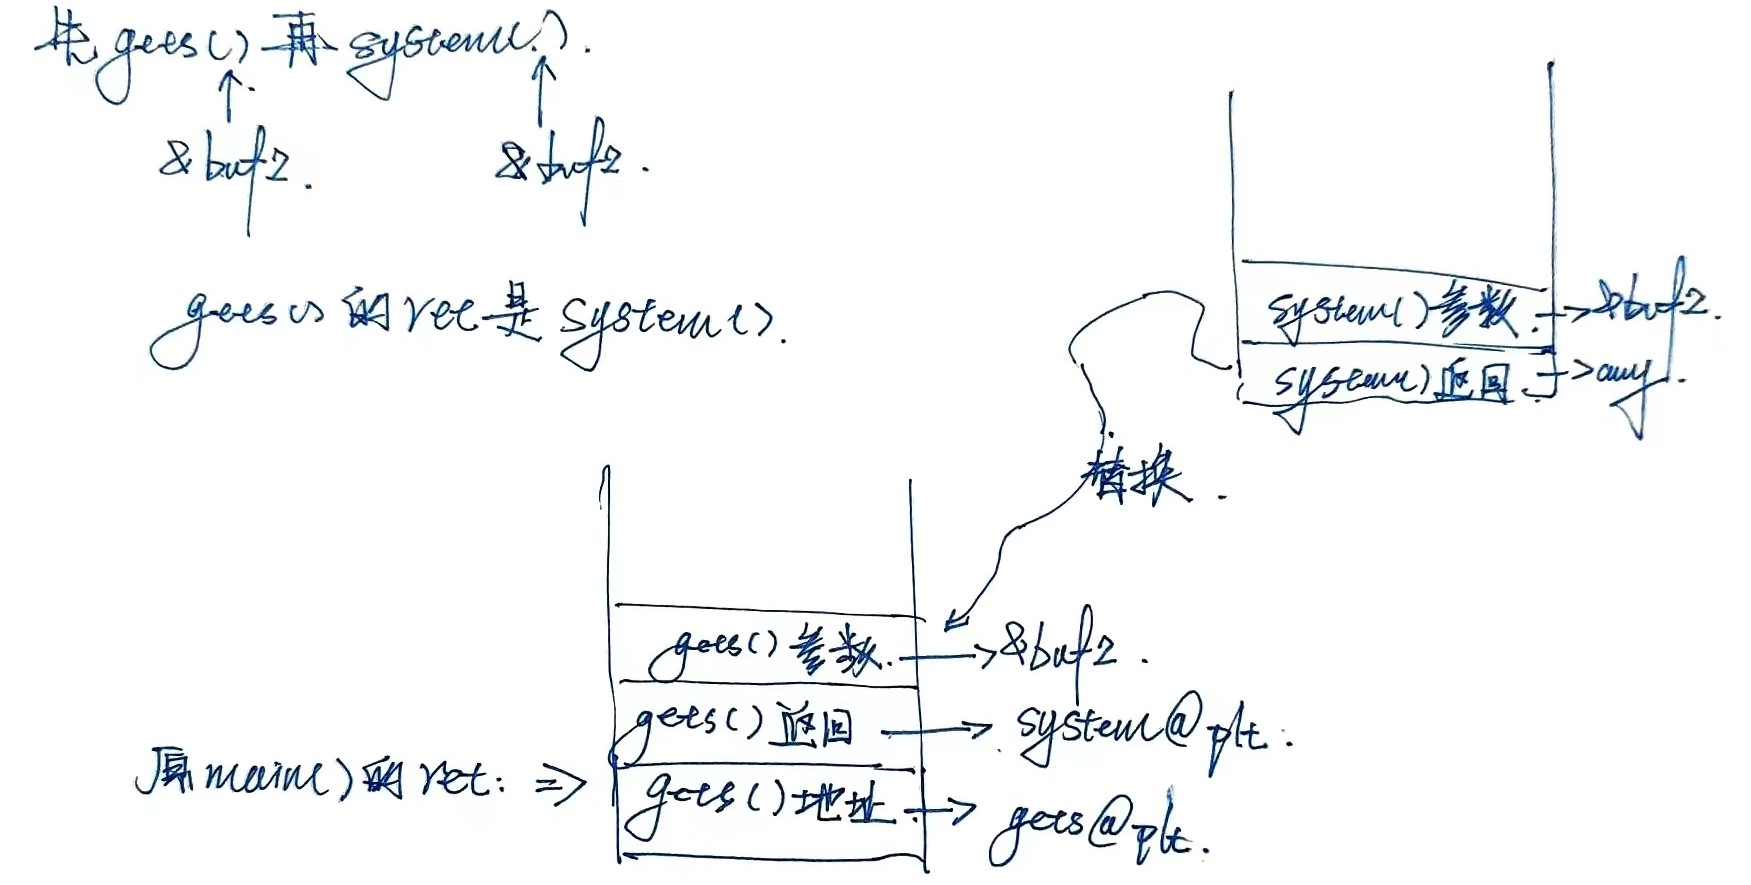 先gets()再system().
&buf2. &buf2.
gets()的ret是system().
system()参数.→&buf2.
system()返回.→any.
替换.
gets()参数.→&buf2.
gets()返回→system@plt.
原main()的ret:⇒ gets()地址.→gets@plt.